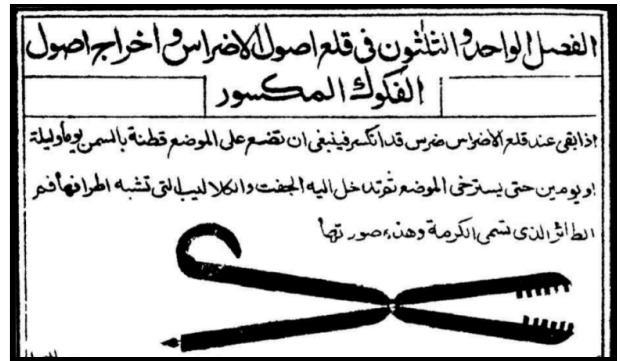 الفصل الواحد والثلثون فى قلع اصول الاضراس و اخراج اصول
الفكوك المكسور
اذا بقى عند قلع الاضراس ضرس قد انكسر فينبغى ان تضع على الموضع قطنة بالسمن يوما وليلة
او يومين حتى يسترخى الموضع ثم تدخل اليه الجفت والكلاليب التى تشبه اطرافها فم
الطائر الذى تسمى الكرمة وهذه صورتها